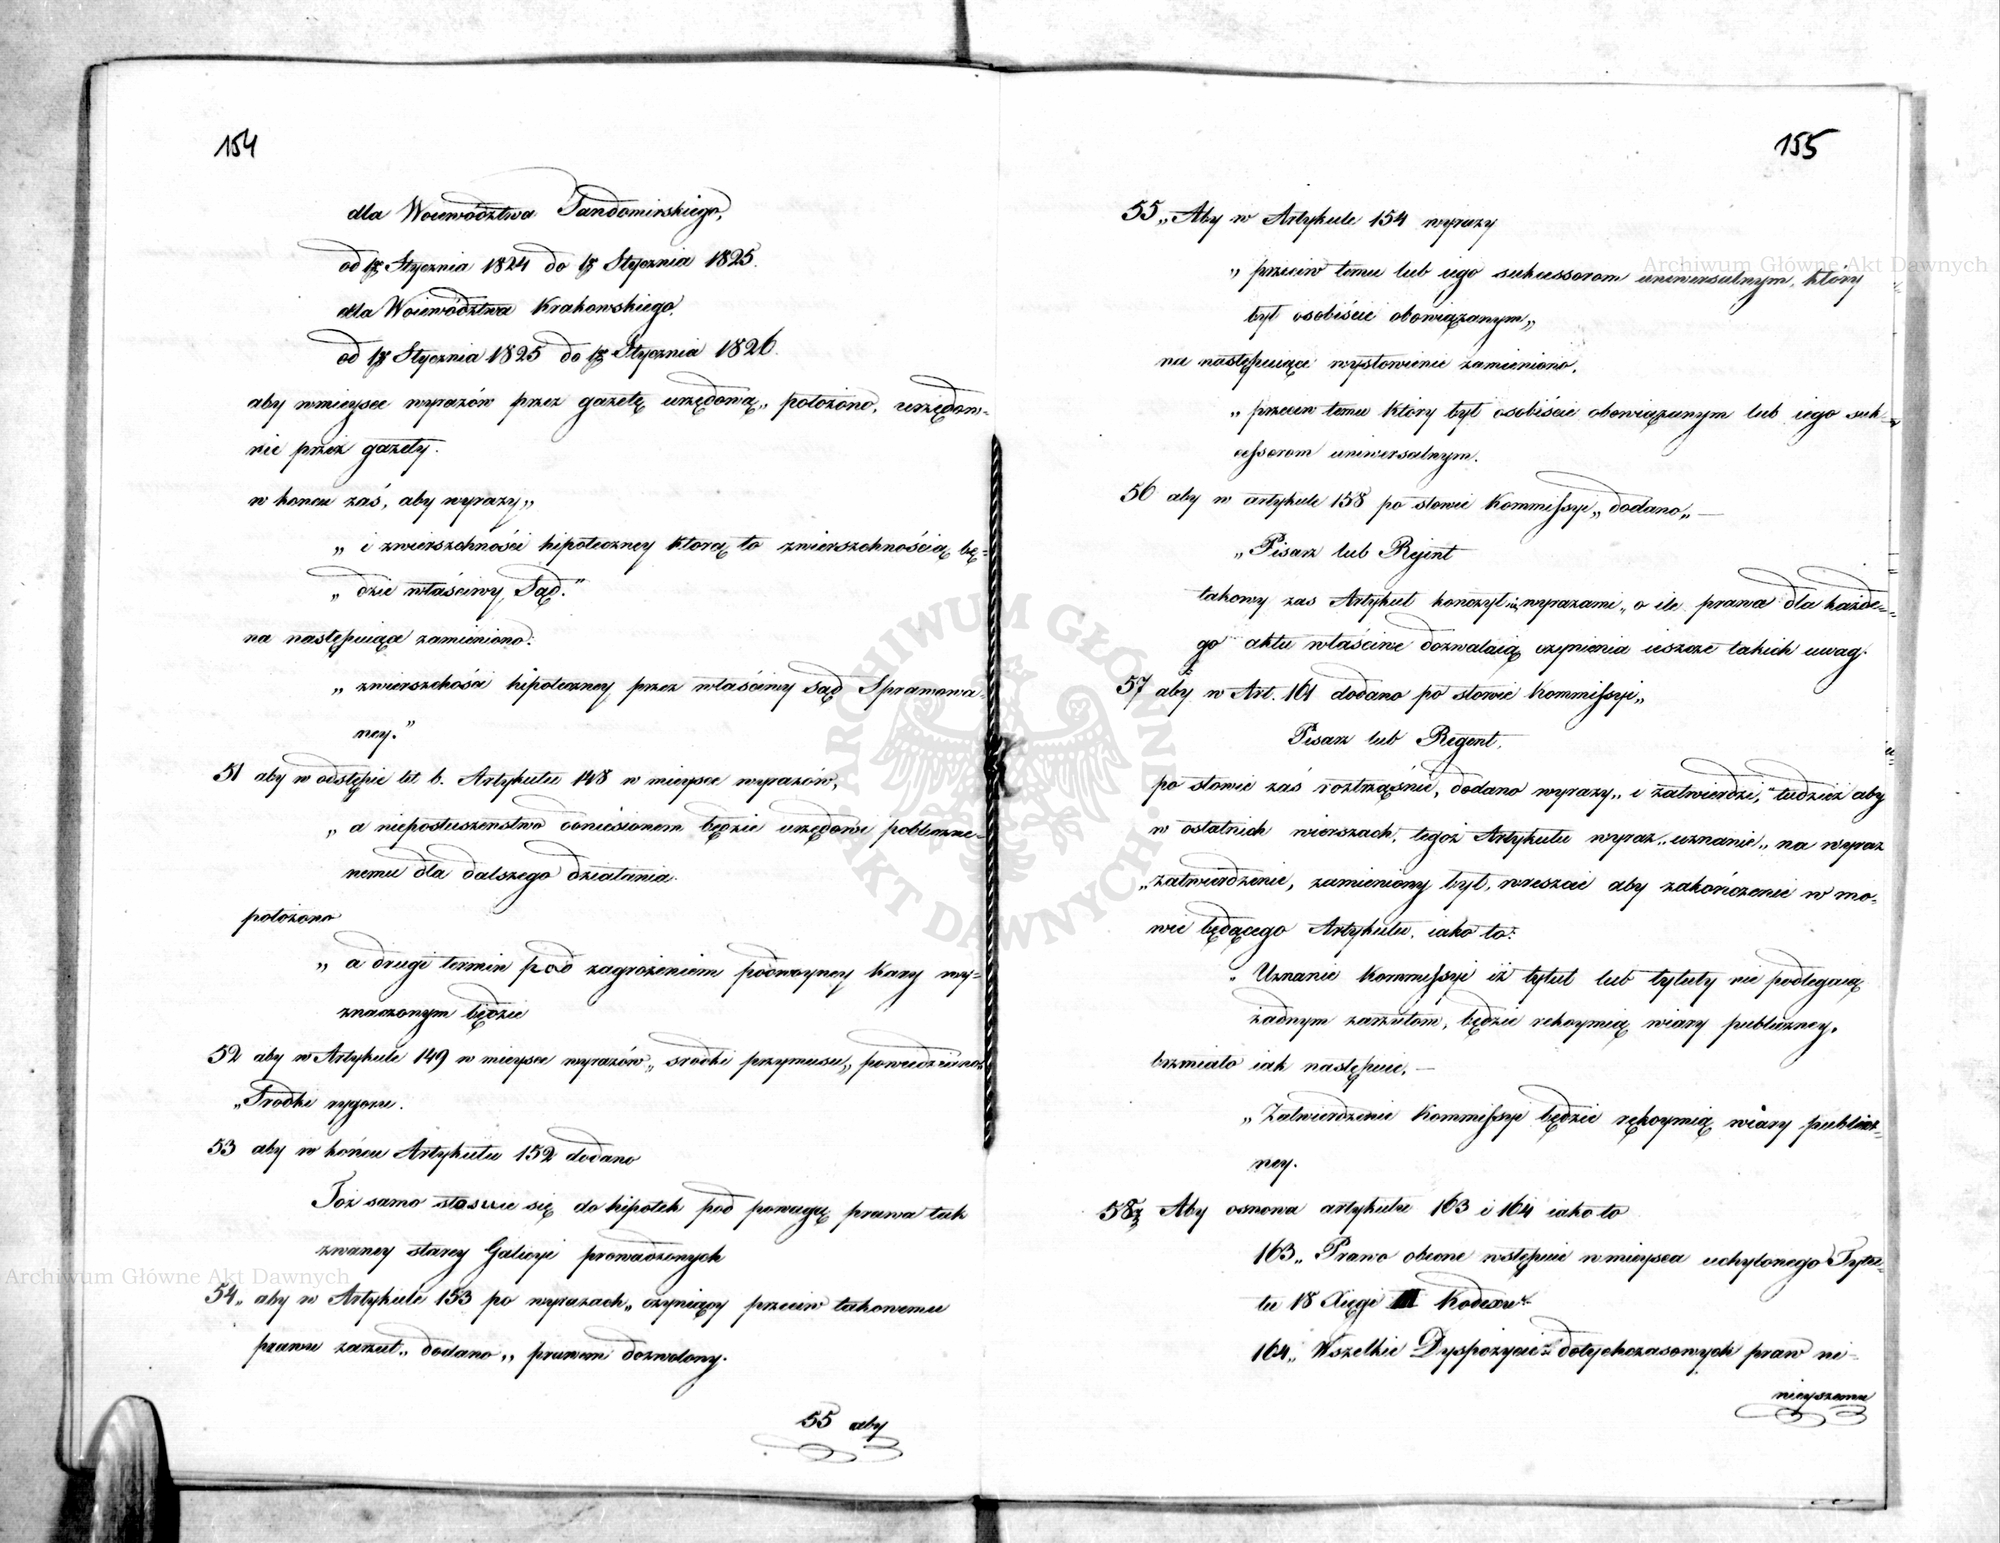 154
dla Woiewództwa Sandomirskiego,
od 1/2 Stycznia 1824 do 1/2 Stycznia 1825.
dla Woiewództwa Krakowskiego,
od 1/2 Stycznia 1825 do 1/2 Stycznia 1826.
aby w mieysce wyrazów przez gazetę urzędową„ położono, urzędow-
nie przez gazety.
w koncu zaś, aby wyrazy„
„ i zwierzchności hipoteczney którą to zwierszchnością bę=
„ dzie właściwy Sąd."
na następuiące zamieniono:
„ zwierszchości hipoteczney przez właściwy Sąd Sprawowa-
ney."
51 aby w odstępie lit b. Artykułu 148 w mieysce wyrazów,
„ a nieposłuszenstwo doniesionem będzie urzędowi publiczne-
nemu dla dalszego działania.
położono
„ a drugi termin pod zagrożeniem podwoyney kary wy-
znaczonym będzie
52 aby w Artykule 149 w mieysce wyrazów„ srodki przymusu„ powiedziano
„Srodki rygoru.
53 aby w końcu Artykułu 152 dodano
Toż samo stosuie się do hipotek pod powagą prawa tak
zwaney starey Galicyi prowadzonych
54„ aby w Artykule 153 po wyrazach„ czyniący przeciw takowemu
prawu zarzut„ dodano„ prawem dozwolony.
55 aby
155
55„ Aby w Artykule 154 wyrazy
„ przeciw temu lub iego sukcessorom uniwersalnym, który
był osobiście obowiązanym„
na następuiące wysłowienie zamieniono.
„ przeciw temu który był osobiście obowiązanym lub iego suk-
cessorom uniwersalnym.
56 aby w artykule 158 po słowie Kommissyi„ dodano„ —
„Pisarz lub Rejent
takowy zas Artykuł konczył się wyrazami„ o ile prawa dla każde-
go aktu właściwe dozwalaią czynienia ieszcze takich uwag.
57 aby w Art. 161 dodano po słowie Kommissyi„
Pisarz lub Regent,
po słowie zaś roztrząśnie, dodano wyrazy„ i zatwierdzi," tudzież aby
w ostatnich wierszach, tegoż Artykułu wyraz„ uznanie„ na wyraz
„zatwierdzenie, zamieniony był, wreszcie aby zakończenie w mo-
wie będącego Artykułu, iako to:
„ Uznanie Kommissyi iż tytuł lub tytuły nie podlegaią
żadnym zarzutom, będzie rękoymią wiary publiczney,
brzmiało iak następuie, —
„ Zatwierdzenie Kommissyi będzie rękoymią wiary publicz-
ney.
58 Aby osnowa artykułu 163 i 164 iako to
163„ Prawo obecne wstępuie w mieysca uchylonego Tytu-
łu 18 Xięgi III Kodexu
164„ Wszelkie Dyspozycie dotychczasowych praw ni-
nieyszemu
ARCHIWUM GŁÓWNE AKT DAWNYCH
Archiwum Główne Akt Dawnych
Archiwum Główne Akt Dawnych